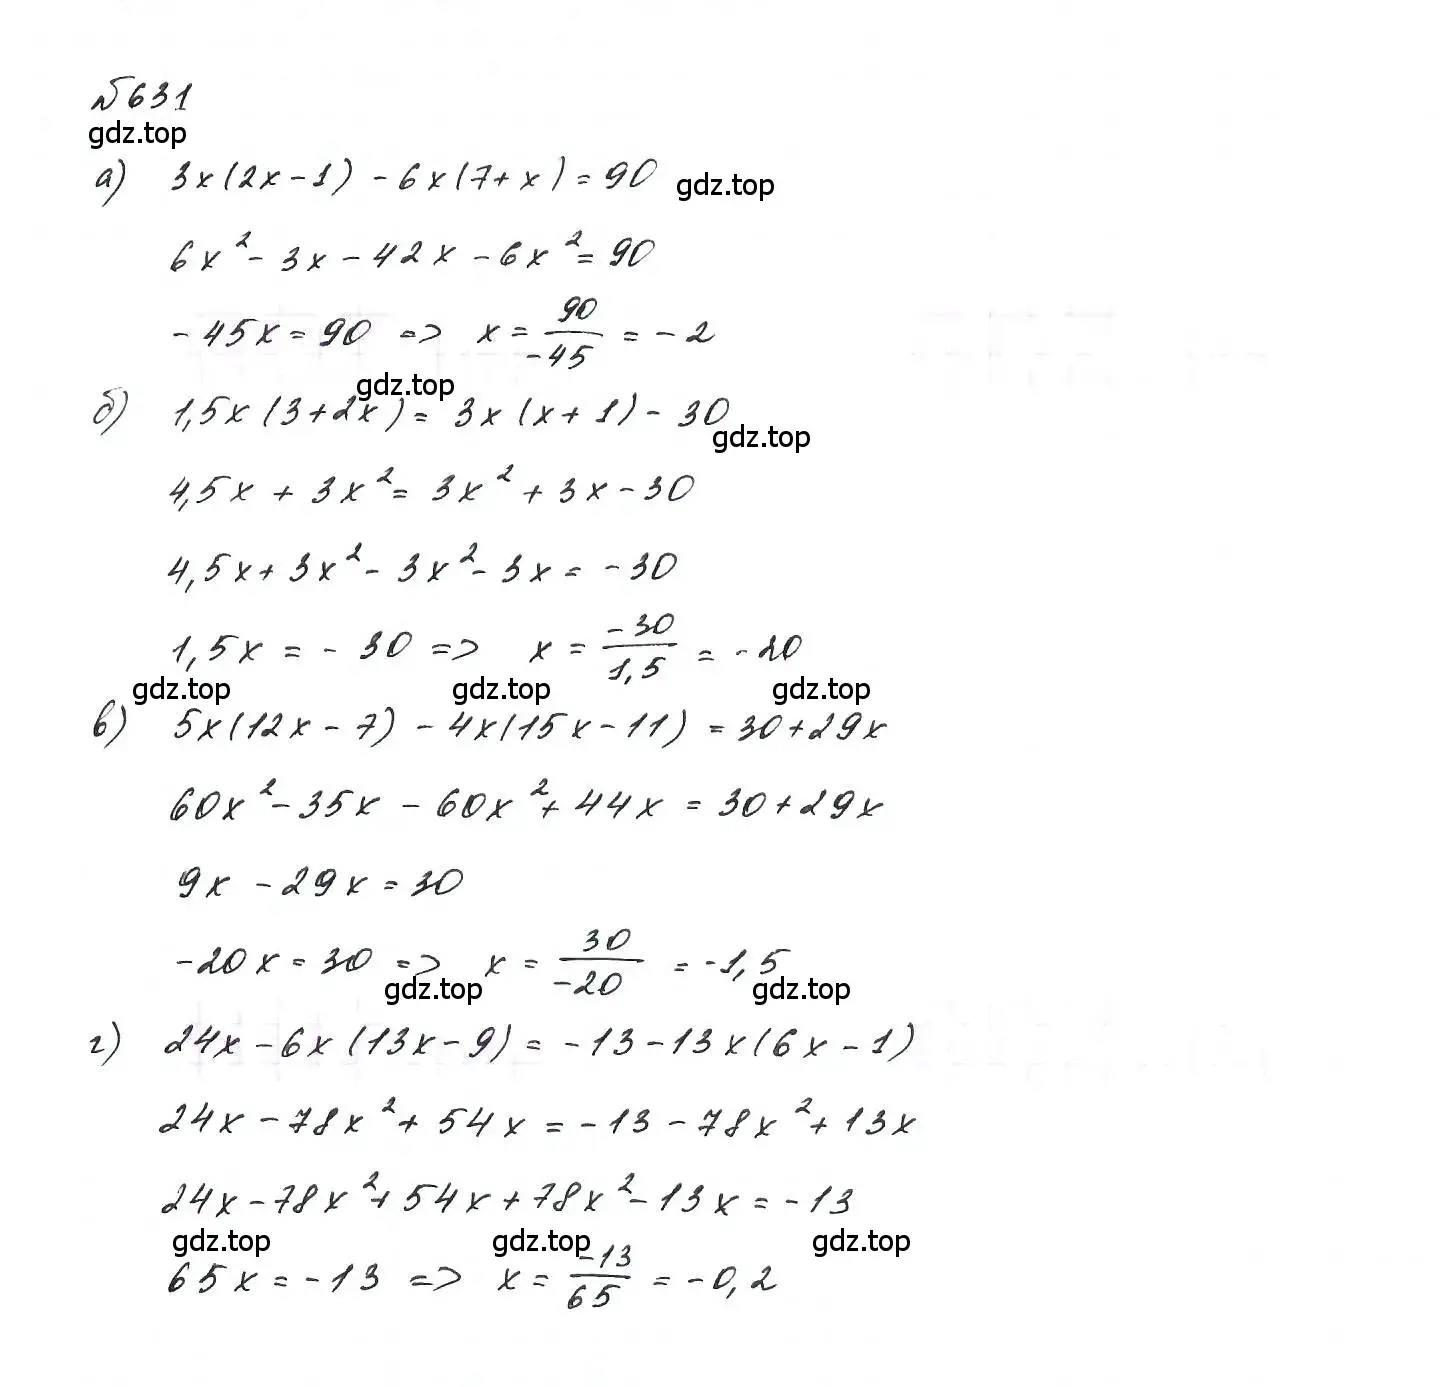 №631
gdz.top
а) 3x(2x-1) - 6x(7+x) = 90 gdz.top
6x² - 3x - 42x - 6x² = 90
-45x = 90 => x = 90/-45 = -2
gdz.top
б) 1,5x(3+2x) = 3x(x+1) - 30
gdz.top
4,5x + 3x² = 3x² + 3x - 30
4,5x + 3x² - 3x² - 3x = -30
1,5x = -30 => x = -30/1,5 = -20
gdz.top gdz.top gdz.top
в) 5x(12x-7) - 4x(15x-11) = 30+29x
60x² - 35x - 60x² + 44x = 30+29x
9x - 29x = 30
-20x = 30 => x = 30/-20 = -1,5
gdz.top gdz.top
г) 24x - 6x(13x-9) = -13 - 13x(6x-1)
24x - 78x² + 54x = -13 - 78x² + 13x
24x - 78x² + 54x + 78x² - 13x = -13
gdz.top gdz.top gdz.top
65x = -13 => x = -13/65 = -0,2